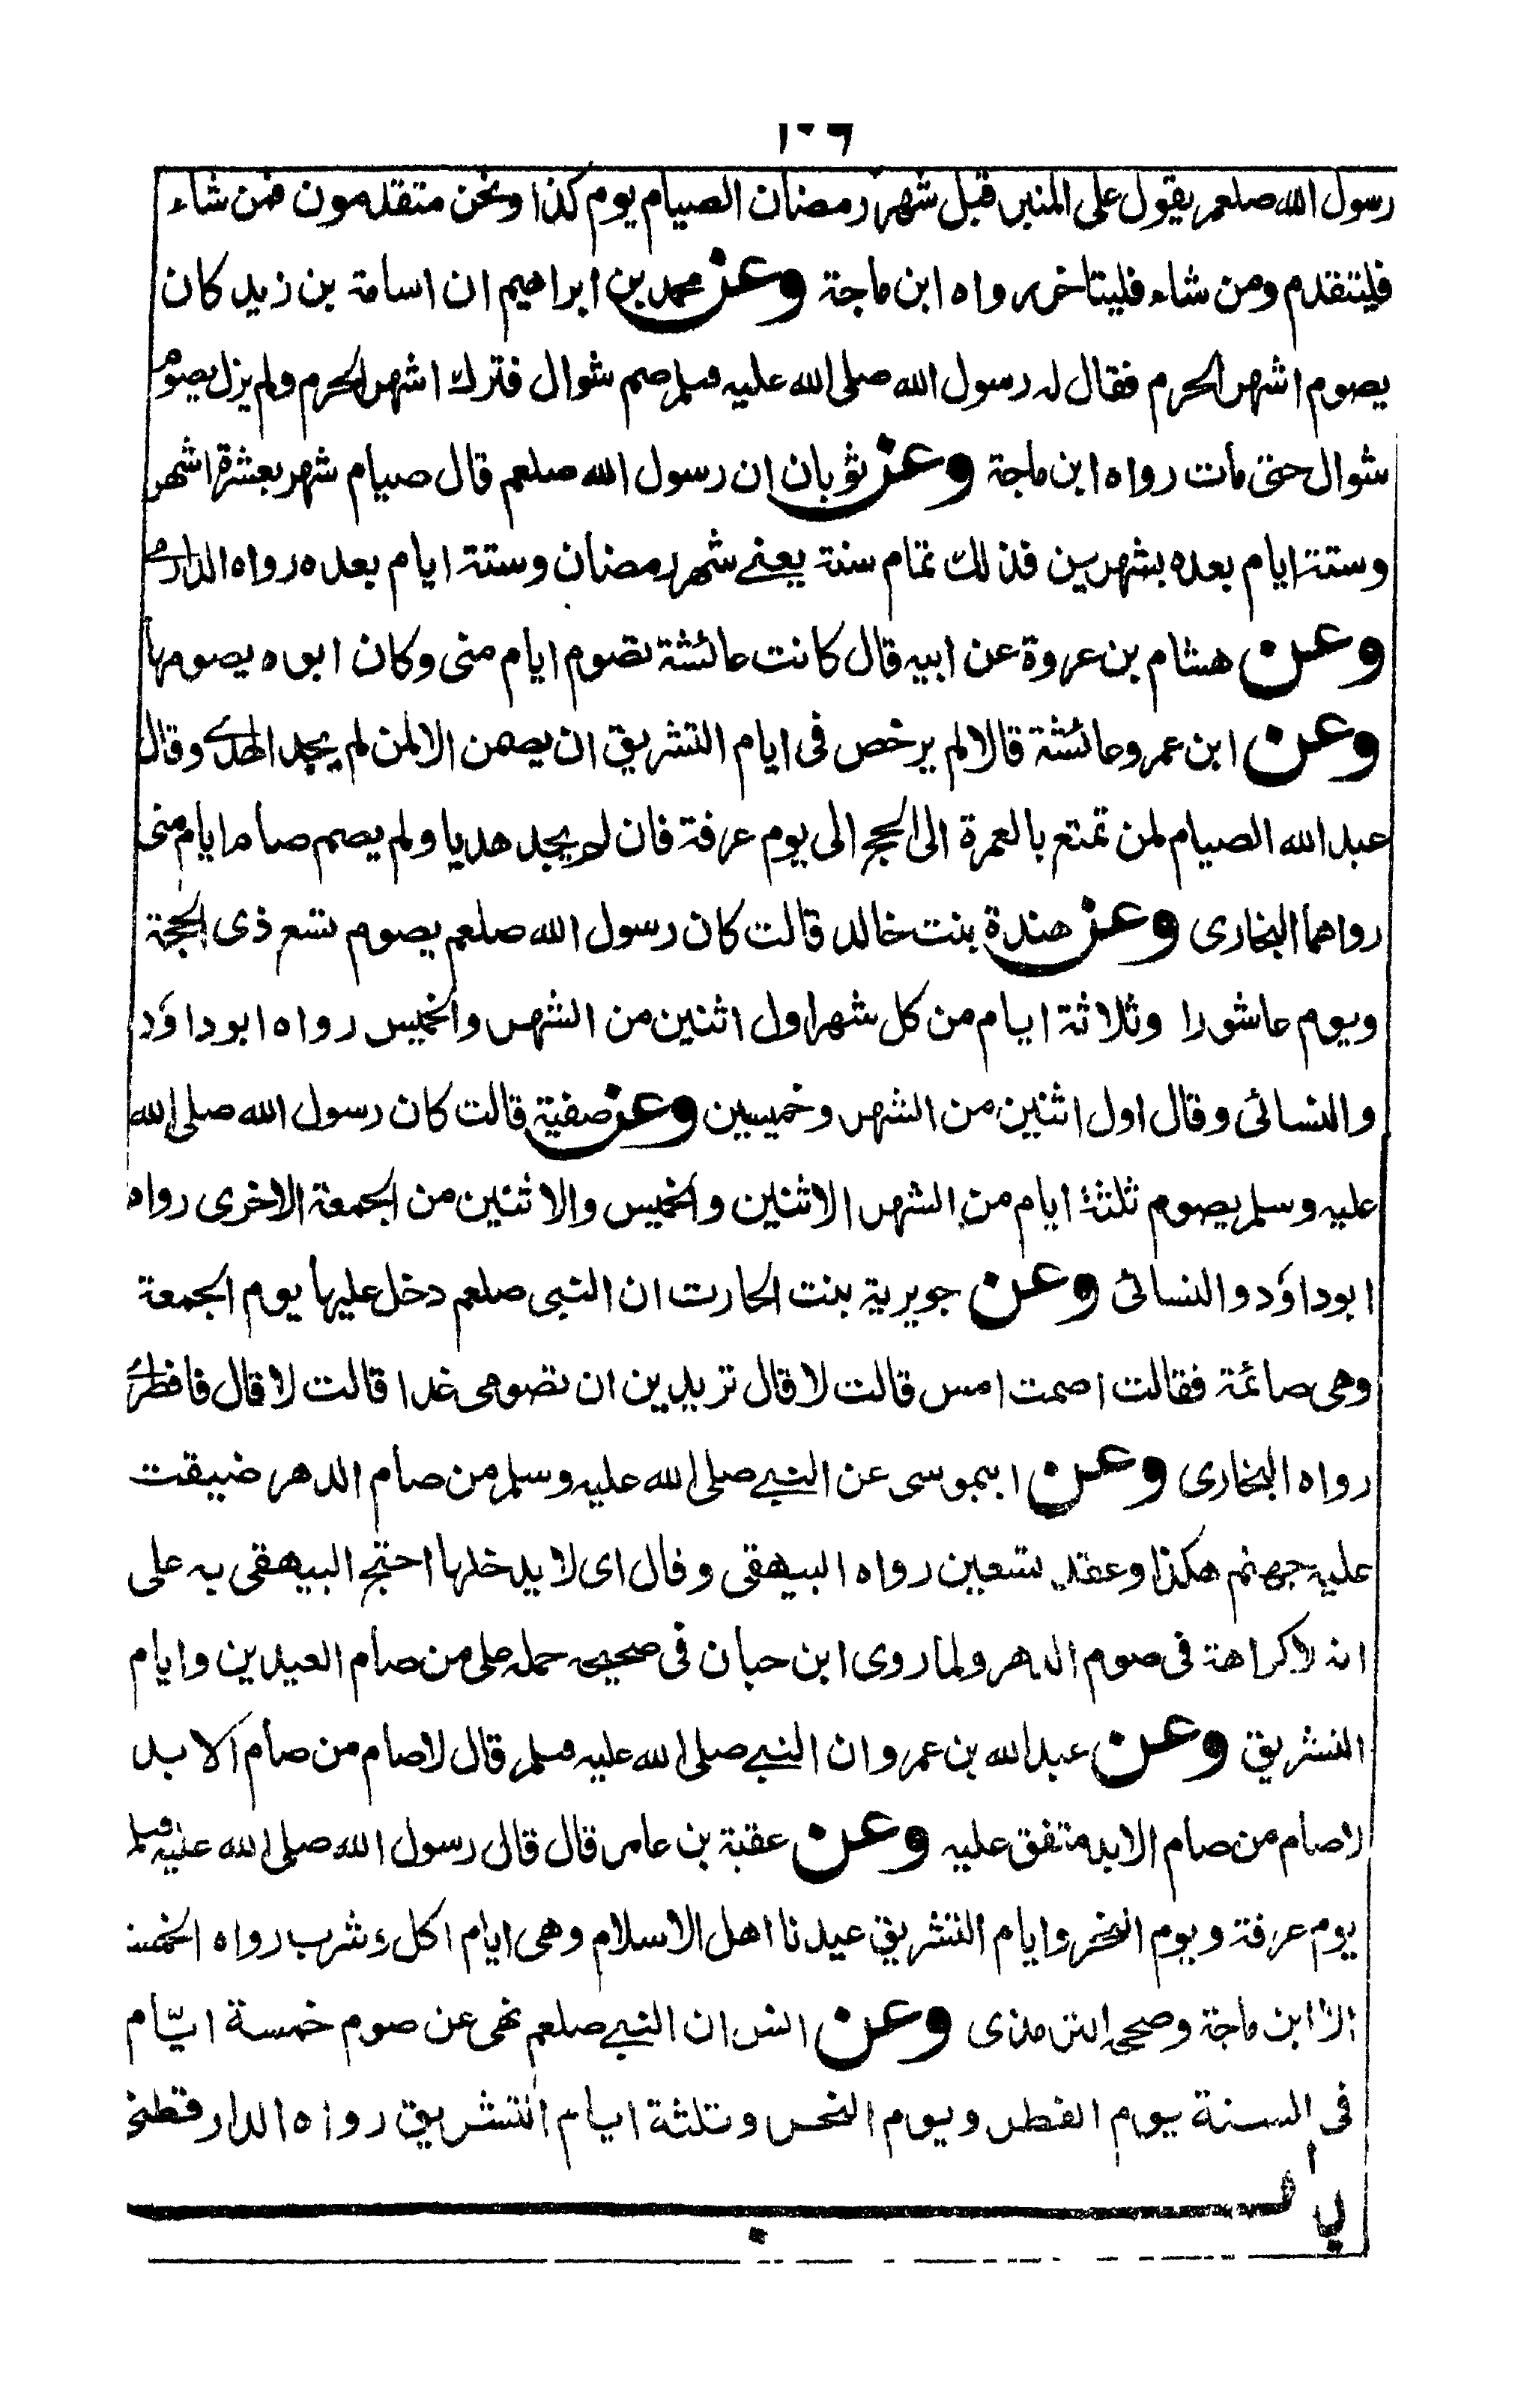 ١٠٦
رسول الله صلعم يقول على المنبر قبل شهر رمضان الصيام يوم كذا ونحن متقدمون فمن شاء
فليتقدم ومن شاء فليتاخر رواه ابن ماجة وعن محمد بن ابراهيم ان اسامة بن زيد كان
يصوم اشهر الحرم فقال له رسول الله صلى الله عليه وسلم صم شوال فترك اشهر الحرم ولم يزل يصوم
شوال حتى مات رواه ابن ماجة وعن ثوبان ان رسول الله صلعم قال صيام شهر بعشرة اشهر
وستة ايام بعده بشهرين فذلك تمام سنة يعنے شهر رمضان وستة ايام بعده رواه الدارمے
وعن هشام بن عروة عن ابيه قال كانت عائشة تصوم ايام منى وكان ابوه يصومها
وعن ابن عمر وعائشة قالا لم يرخص فى ايام التشريق ان يصمن الا لمن لم يجد الهدے وقال
عبد الله الصيام لمن تمتع بالعمرة الى الحج الى يوم عرفة فان لم يجد هديا ولم يصم صام ايام منى
رواهما البخارى وعن هندة بنت خالد قالت كان رسول الله صلعم يصوم تسع ذى الحجة
ويوم عاشورا وثلاثة ايام من كل شهر اول اثنين من الشهر والخميس رواه ابو داؤد
والنسائى وقال اول اثنين من الشهر وخميسين وعن صفية قالت كان رسول الله صلى الله
عليه وسلم يصوم ثلثة ايام من الشهر الاثنين والخميس والاثنين من الجمعة الاخرى رواه
ابو داؤد والنسائى وعن جويرية بنت الحارث ان النبى صلعم دخل عليها يوم الجمعة
وهى صائمة فقالت اصمت امس قالت لا قال تريدين ان تصومى غدا قالت لا قال فافطرے
رواه البخارى وعن ابيموسى عن النبے صلى الله عليه وسلم من صام الدهر ضيقت
عليه جهنم هكذا وعقد تسعين رواه البيهقى وقال اى لا يدخلها احتج البيهقى به على
انه لا كراهة فى صوم الدهر ولما روى ابن حبان فى صحيحه حمله على من صام العيدين وايام
التشريق وعن عبد الله بن عمرو ان النبے صلى الله عليه وسلم قال لا صام من صام الابد
لا صام من صام الابد متفق عليه وعن عقبة بن عامر قال قال رسول الله صلى الله عليه وسلم
يوم عرفة ويوم النحر وايام التشريق عيدنا اهل الاسلام وهى ايام اكل وشرب رواه الخمسة
الا ابن ماجة وصححه الترمذى وعن انس ان النبے صلعم نهى عن صوم خمسة ايّام
فى السنة يوم الفطر ويوم النحر وثلثة ايام التشريق رواه الدارقطنے
باب